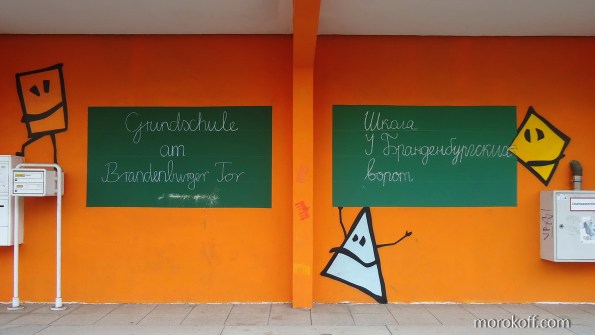 Grundschule
am
Brandenburger Tor
Школа
У Бранденбургских
ворот
morokoff.com